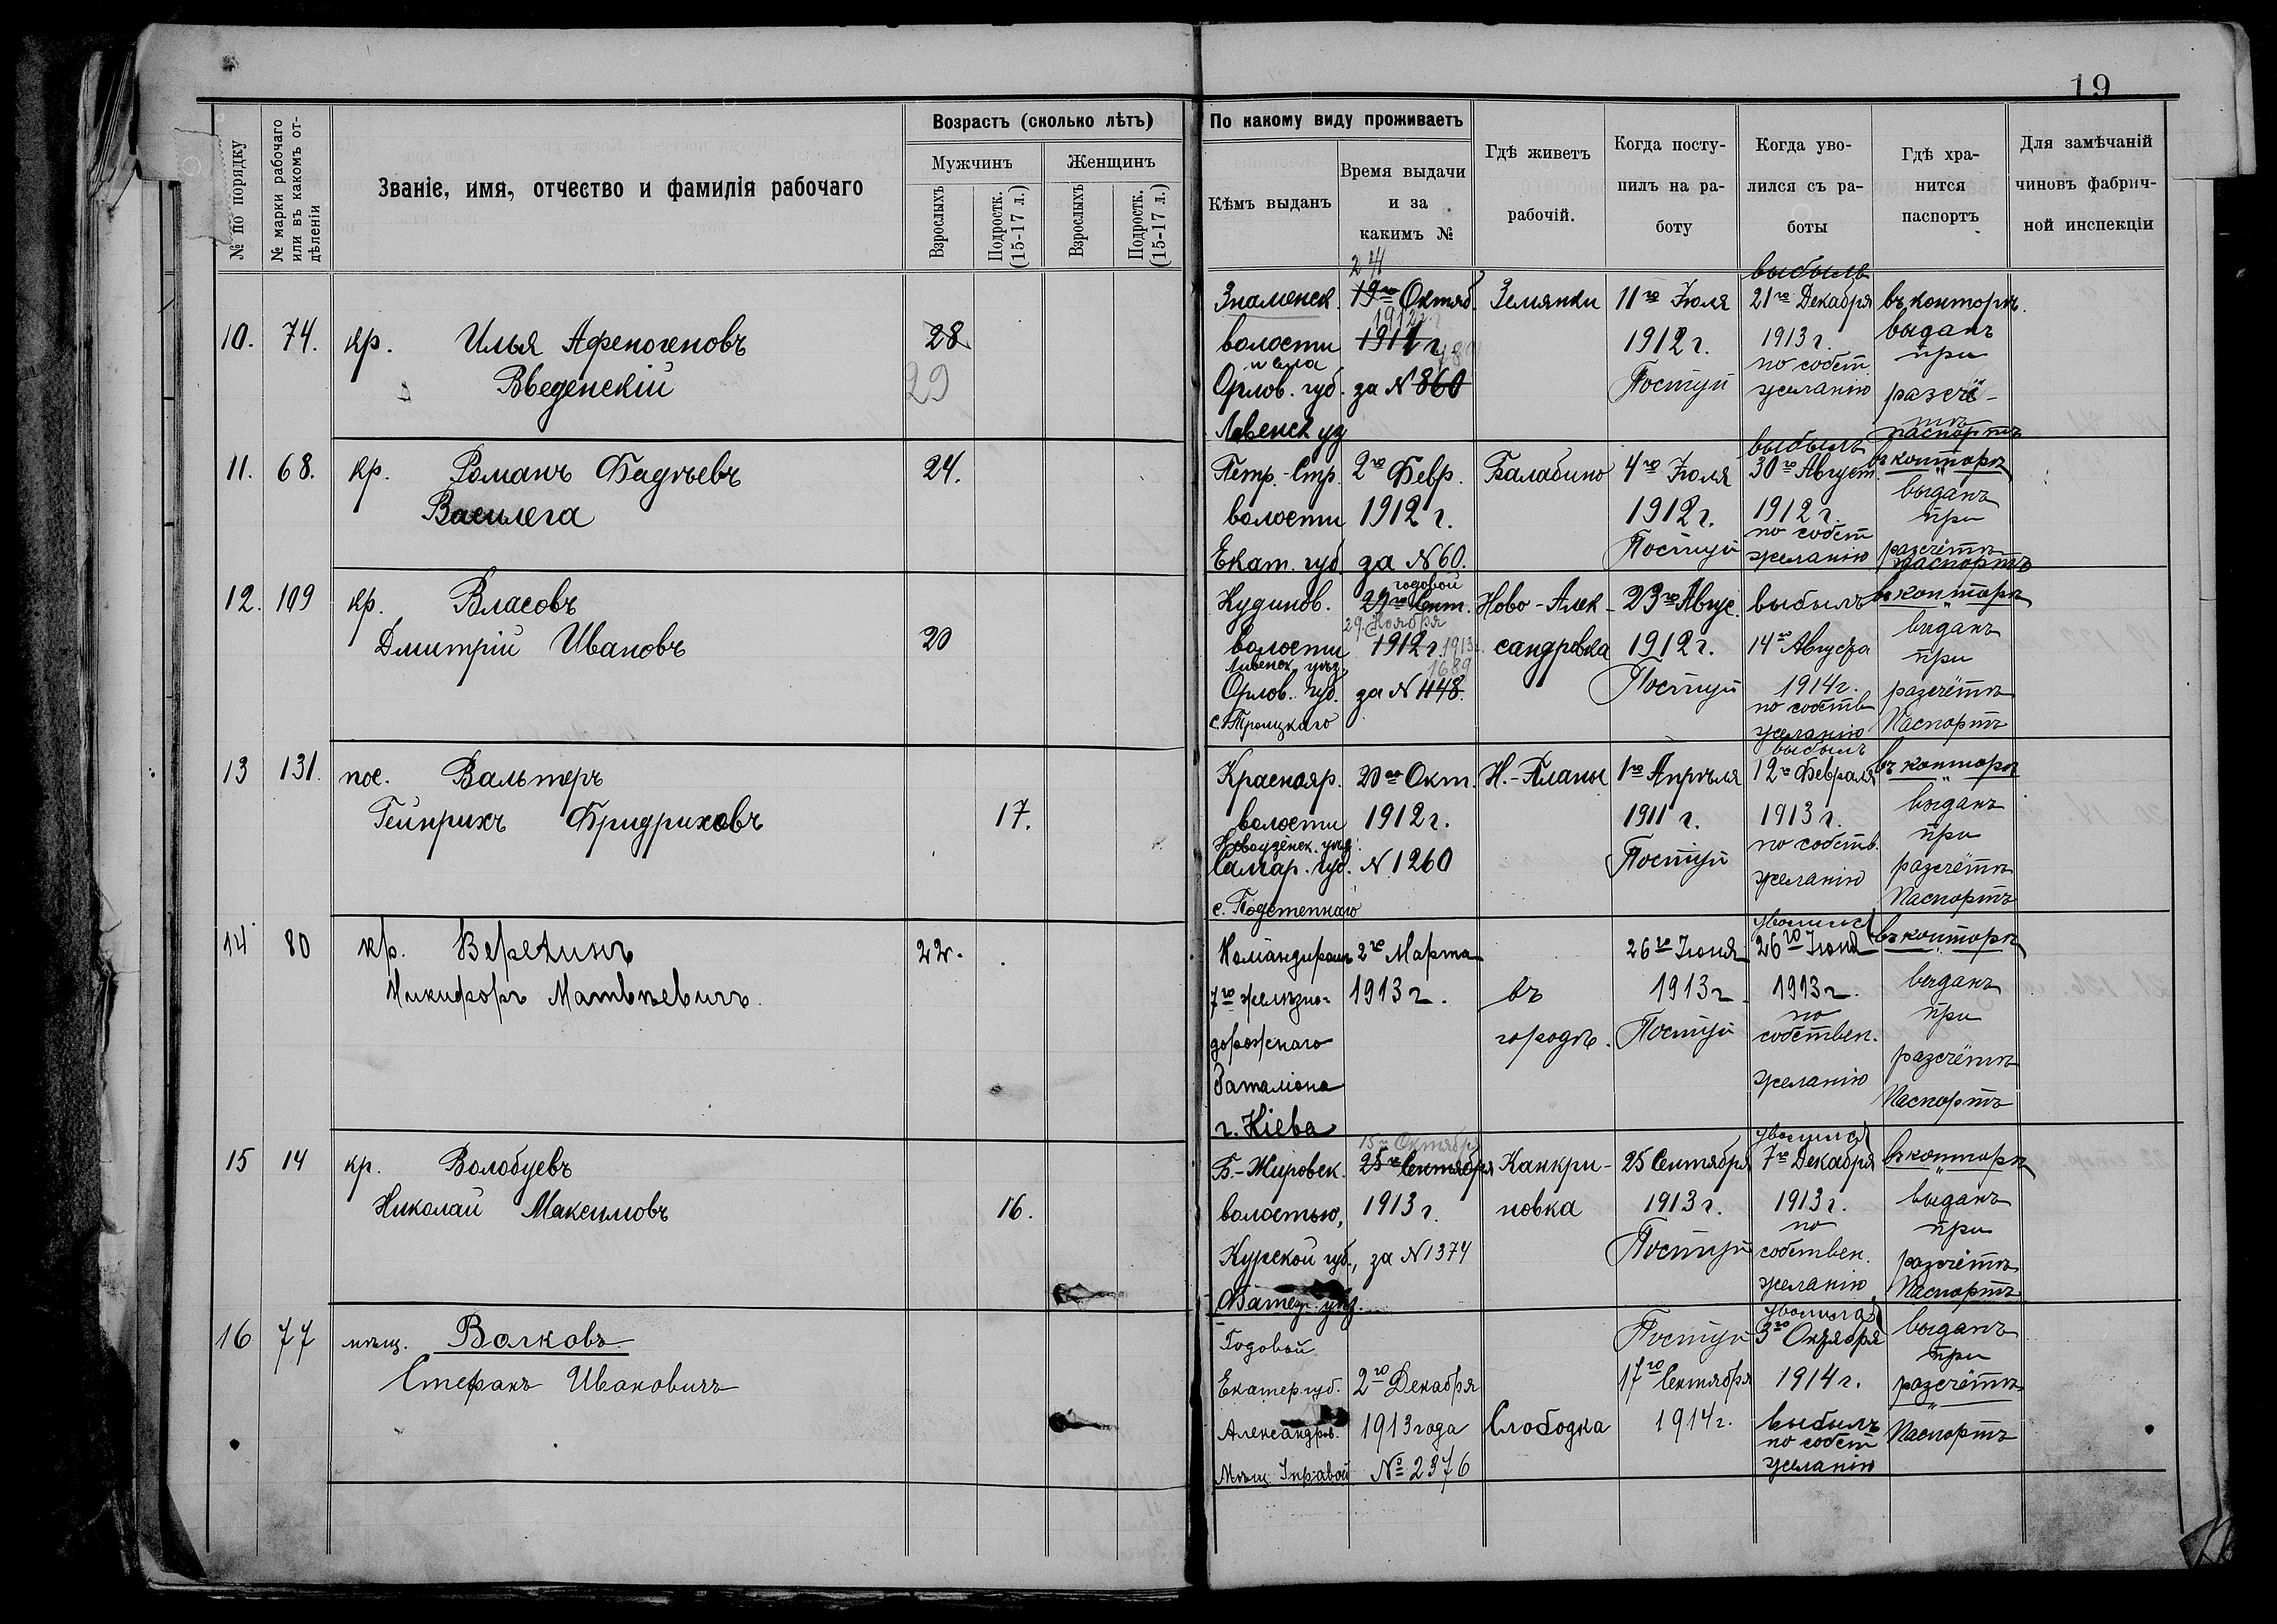 19
№ по порядку
№ марки рабочаго или въ какомъ отдѣленіи
Званіе, имя, отчество и фамилія рабочаго
Возрастъ (сколько лѣтъ)
Мужчинъ
Женщинъ
Взрослыхъ
Подростк. (15-17 л.)
Взрослыхъ
Подростк. (15-17 л.)
По какому виду проживаетъ
Кѣмъ выданъ
Время выдачи
и за
какимъ №
Гдѣ живетъ
рабочій.
Когда посту-
пилъ на ра-
боту
Когда уво-
лился съ ра-
боты
Гдѣ хра-
нится
паспортъ
Для замѣчаній
чиновъ фабрич-
ной инспекціи
10. 74. кр. Илья Афеногеновъ
Введенскій
28
29
Знаменск.
волости
Орлов. губ.
Ливенск уѣ
24
19го Октяб.
1912г.
1911 г.
за № 860
Землянки
11го Іюля
1912 г.
Поступ
выбылъ
21го Декабря
1913 г.
по собст
желанію
въ конторѣ.
выданъ
при
разсчё-
тѣ
паспортъ
11. 68. кр. Романъ Фадѣевъ
Василега
24.
Петр.-Стр.
волости
Екат. губ.
2го Февр.
1912 г.
за № 60.
Балабино
4го Іюля
1912 г.
Поступ
выбылъ
30го Август.
1912 г.
по собст
желанію
въ конторѣ
выданъ
при
разсчётѣ
паспортъ
12. 109 кр. Власовъ
Дмитрій Ивановъ
20
Кудинов.
волости
Ливенск. уѣз.
Орлов. губ.
с. Троицкаго
годовой
29го Сент.
29. Ноября
1912 г. 1913г.
1689
за № 1148.
Ново-Алек-
сандровка
23го Авгус.
1912 г.
Поступ
выбылъ
14го Августа
1914г.
по собств
желанію
въ конторѣ
выданъ
при
разсчётѣ
Паспортъ
13 131. пос. Вальтеръ
Гейнрихъ Фридриховъ
17.
Краснояр.
волости
Новоузенск. уѣзд.
Самар. губ.
с. Подстепнаго
20го Окт.
1912 г.
№ 1260
Н.-Планы
1го Апрѣля
1911 г.
Поступ
выбылъ
12го Февраля
1913 г.
по собств.
желанію
въ конторѣ
выданъ
при
разсчётѣ
Паспортъ
14 80 кр. Веретинъ
Никифоръ Матвѣевичъ.
22.
Командиромъ
7го желѣзно-
дорожнаго
баталіона
г. Кіева
2го Марта
1913 г.
въ
городѣ.
26го Іюня
1913 г
Поступ
уволился
26го Іюня
1913 г.
по
собствен.
желанію
въ конторѣ
выданъ
при
разсчётѣ
Паспортъ
15 14 кр. Волобуевъ
Николай Максимовъ
16.
Б.-Жировск.
волостью,
Курской губ.,
Фатеж. уѣз.
15го Октября
25го Сентября
1913 г.
за № 1374
Канкри-
новка
25 Сентября
1913 г.
Поступ
уволился
7го Декабря
1913 г.
по
собствен.
желанію
въ конторѣ
выданъ
при
разсчётѣ
Паспортъ
16 77 мѣщ. Волковъ
Стефанъ Ивановичъ
Годовой
Екатер. губ.
Александров.
Мѣщ. Управой
2го Декабря
1913 года
№ 2376
Слободка
Поступ
17го Сентября
1914 г.
уволился
3го Октября
1914 г.
выбылъ
по собст
желанію
выданъ
при
разсчётѣ
Паспортъ